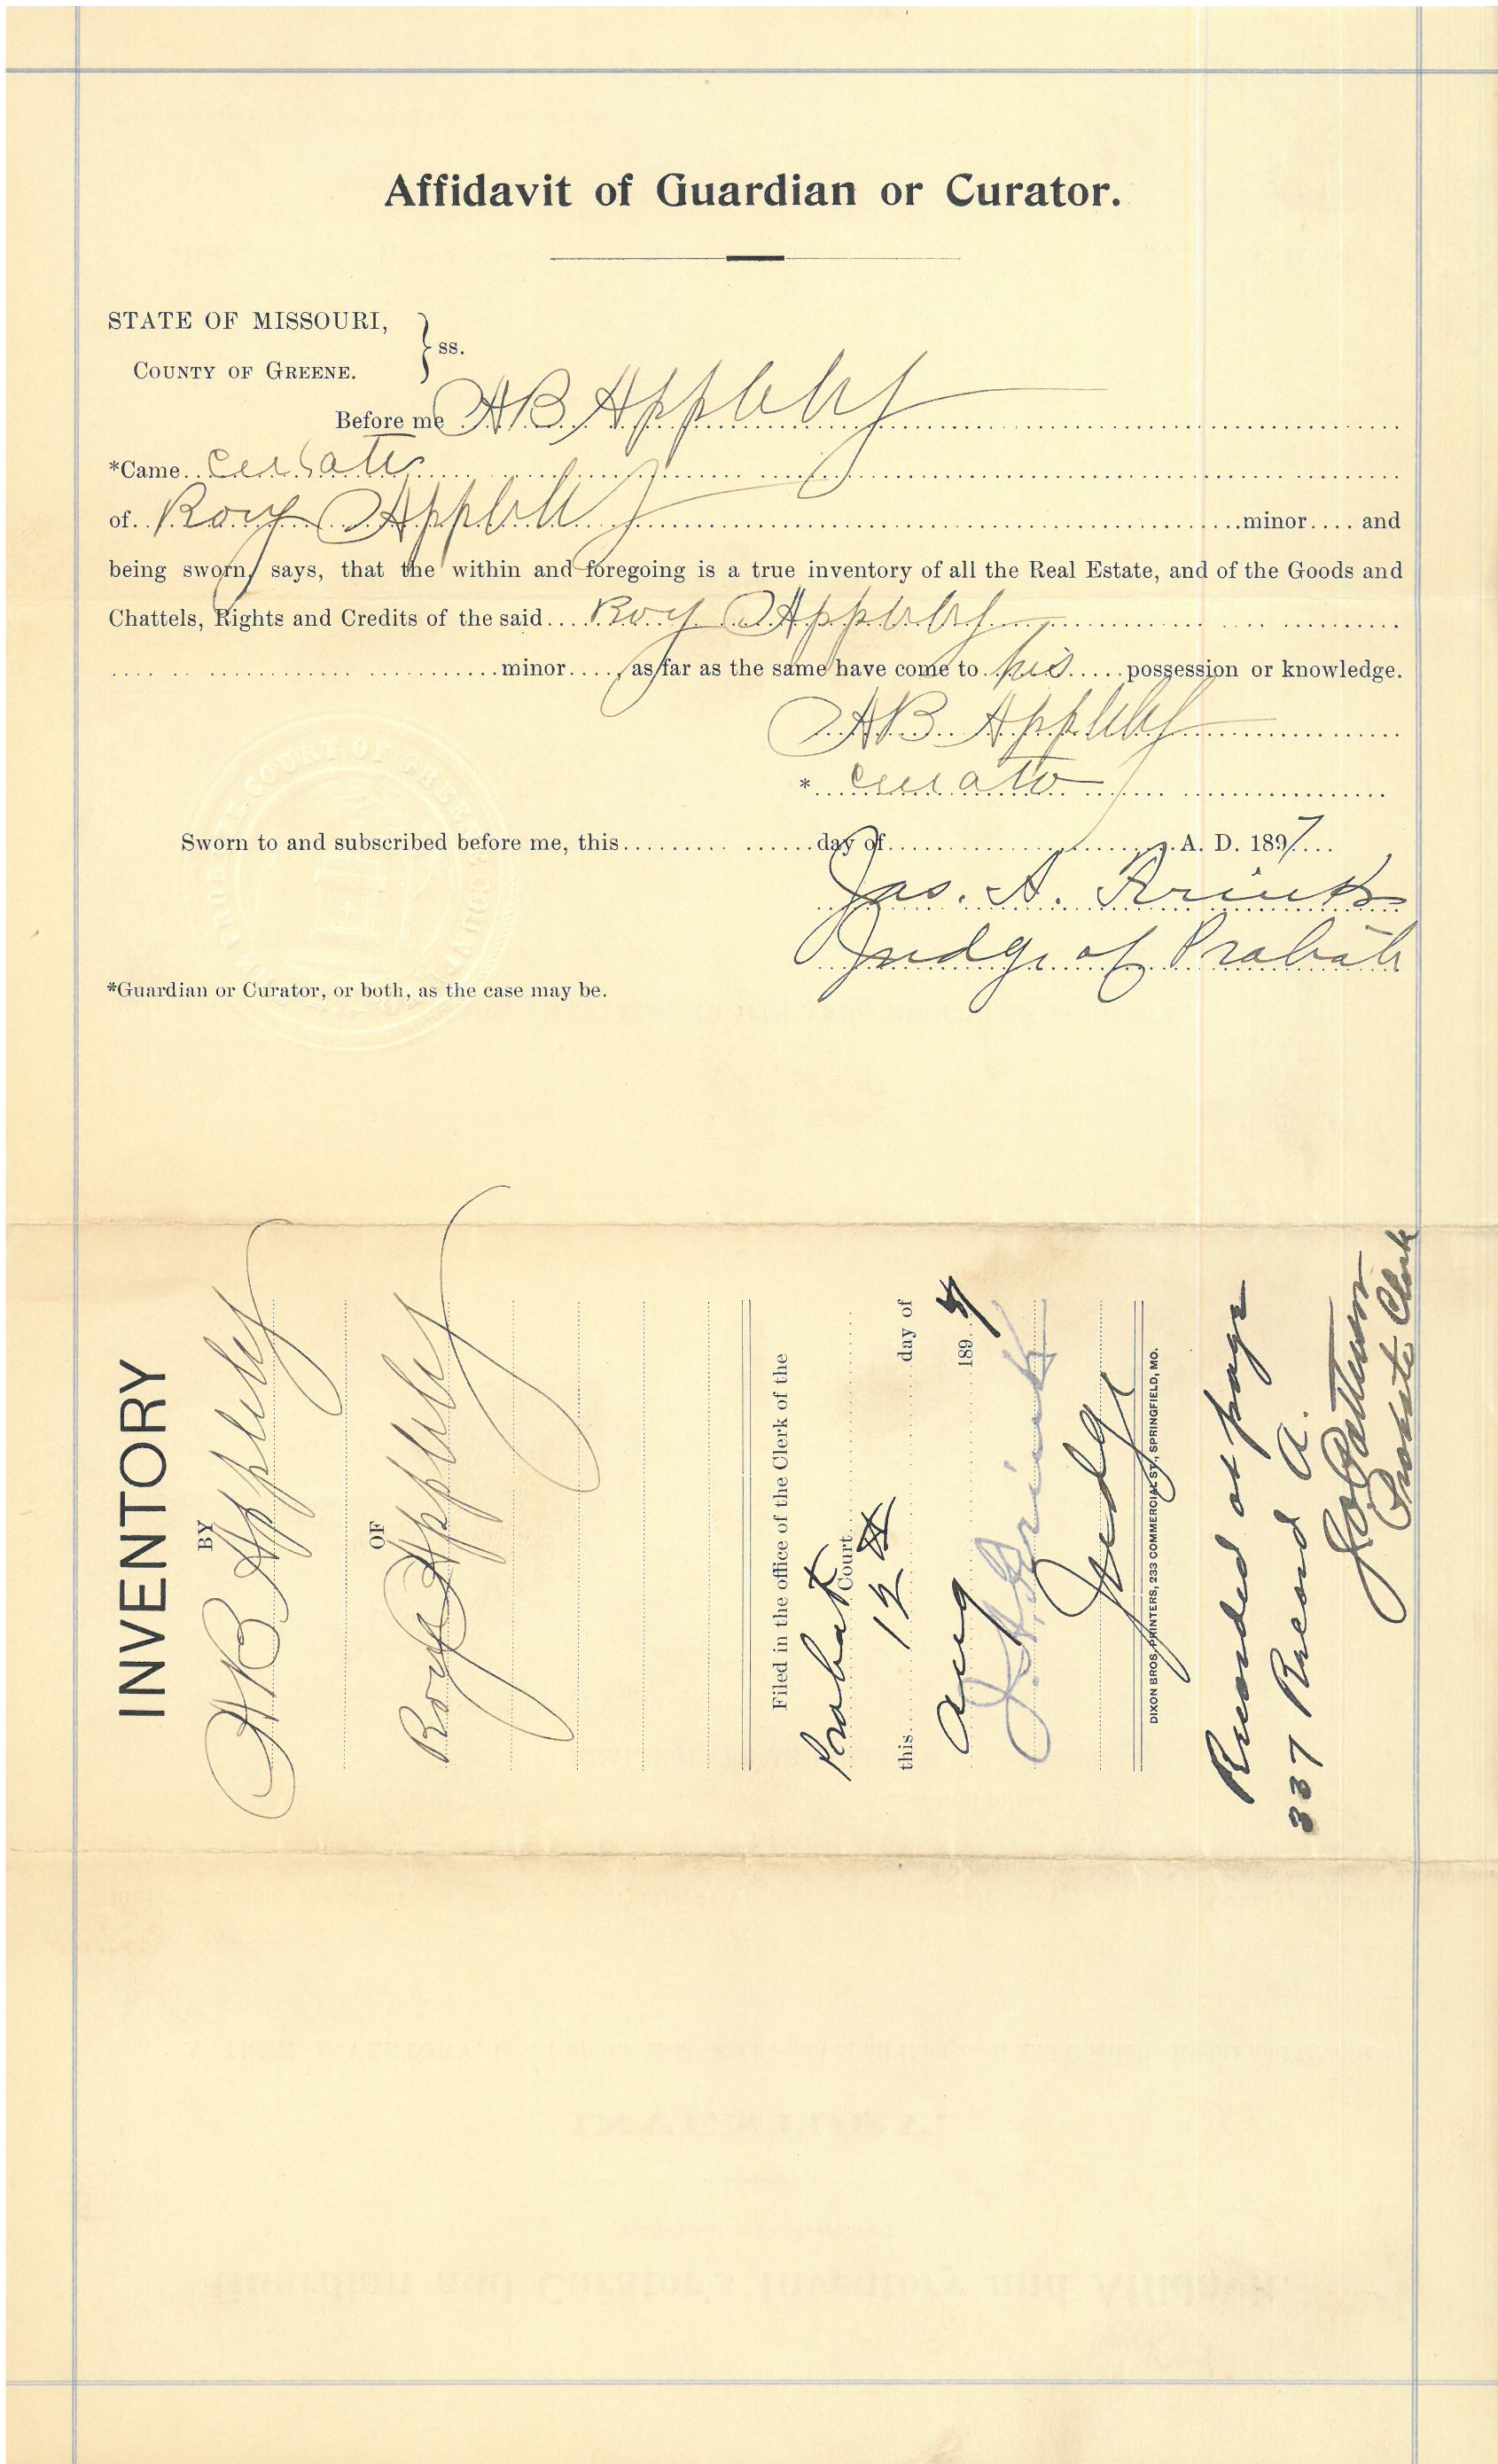 Affidavit of Guardian or Curator.
STATE OF MISSOURI,
COUNTY OF GREENE. } ss.
Before me A B Appleby
*Came curator
of Roy Appleby minor and
being sworn, says, that the within and foregoing is a true inventory of all the Real Estate, and of the Goods and
Chattels, Rights and Credits of the said Roy Appleby
minor, as far as the same have come to his possession or knowledge.
A B Appleby
* curator
Sworn to and subscribed before me, this day of A. D. 1897
Jas. A.
Judge of Probate
*Guardian or Curator, or both, as the case may be.
INVENTORY
BY
A B Appleby
OF
Roy Appleby
Filed in the office of the Clerk of the
Probate Court
this 12th day of
Aug 1897
J. A.
Judge
DIXON BROS. PRINTERS, 233 COMMERCIAL ST., SPRINGFIELD, MO.
Recorded at page
337 Record A.
Probate Clerk